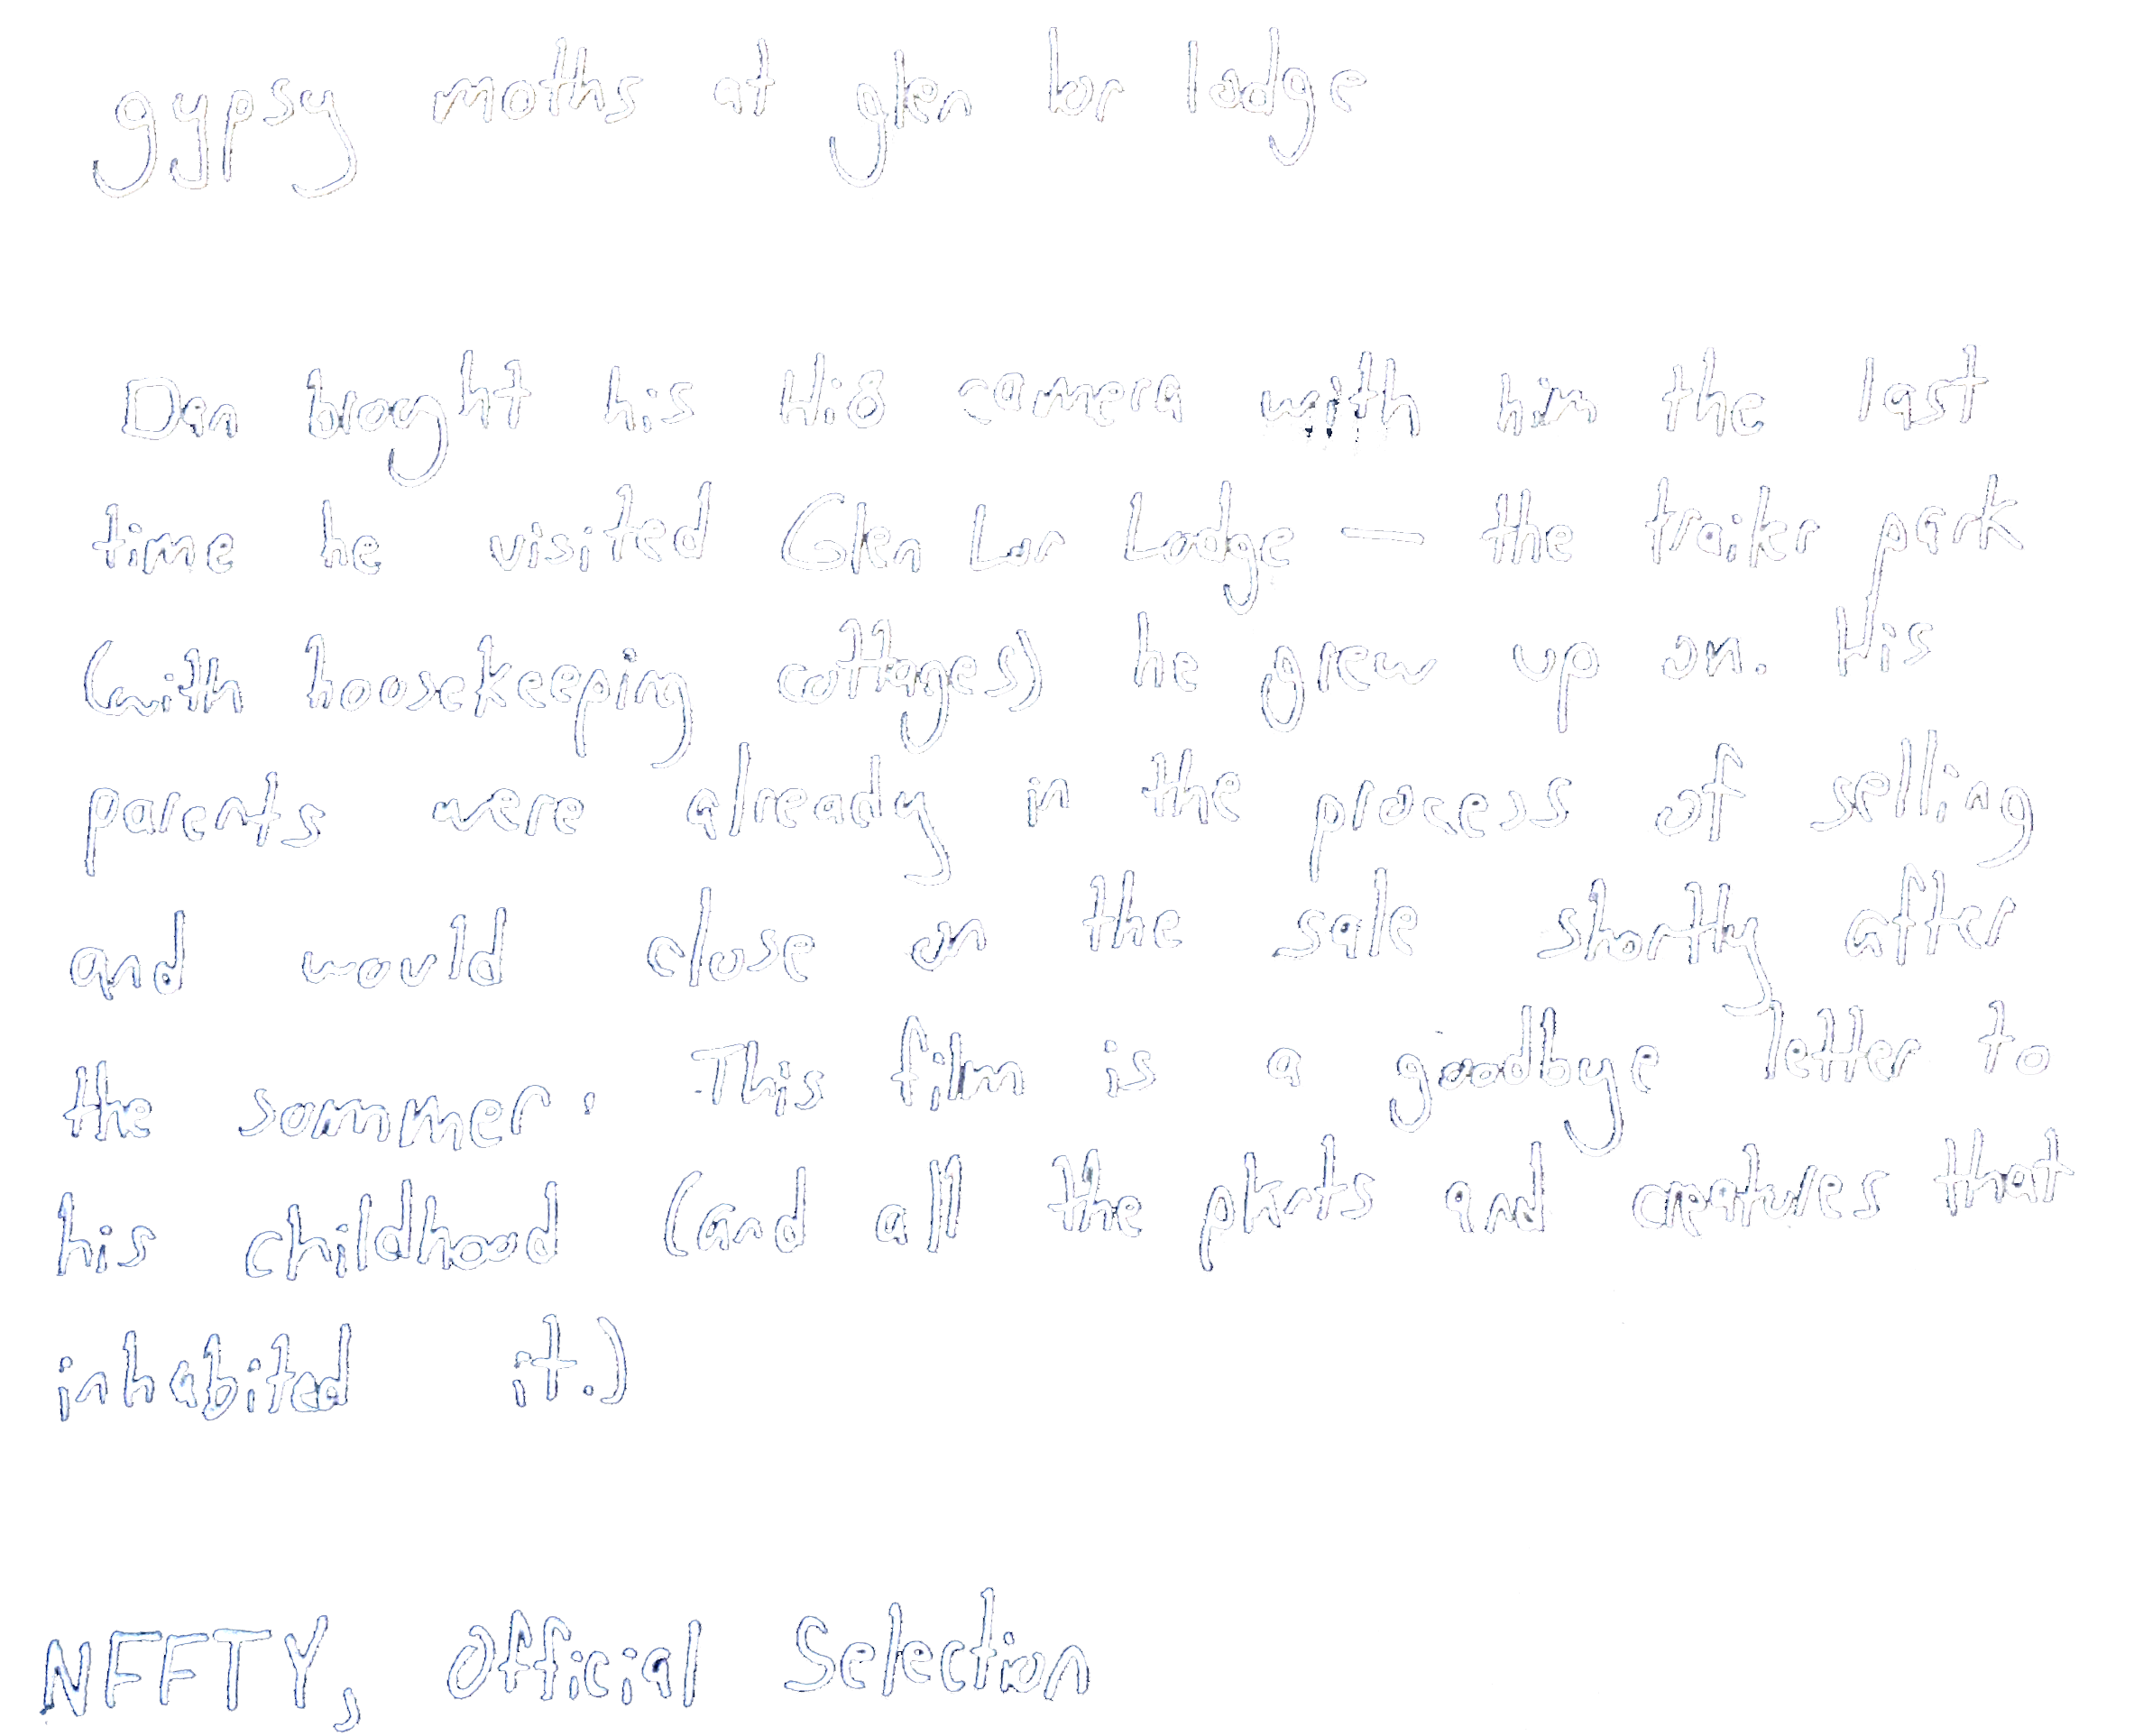 gypsy moths at glen lor lodge
Dan brought his Hi8 camera with him the last
time he visited Glen Lor Lodge — the trailer park
(with housekeeping cottages) he grew up on. His
parents were already in the process of selling
and would close on the sale shortly after
the summer. This film is a goodbye letter to
his childhood (and all the plants and creatures that
inhabited it.)
NFFTY, Official Selection